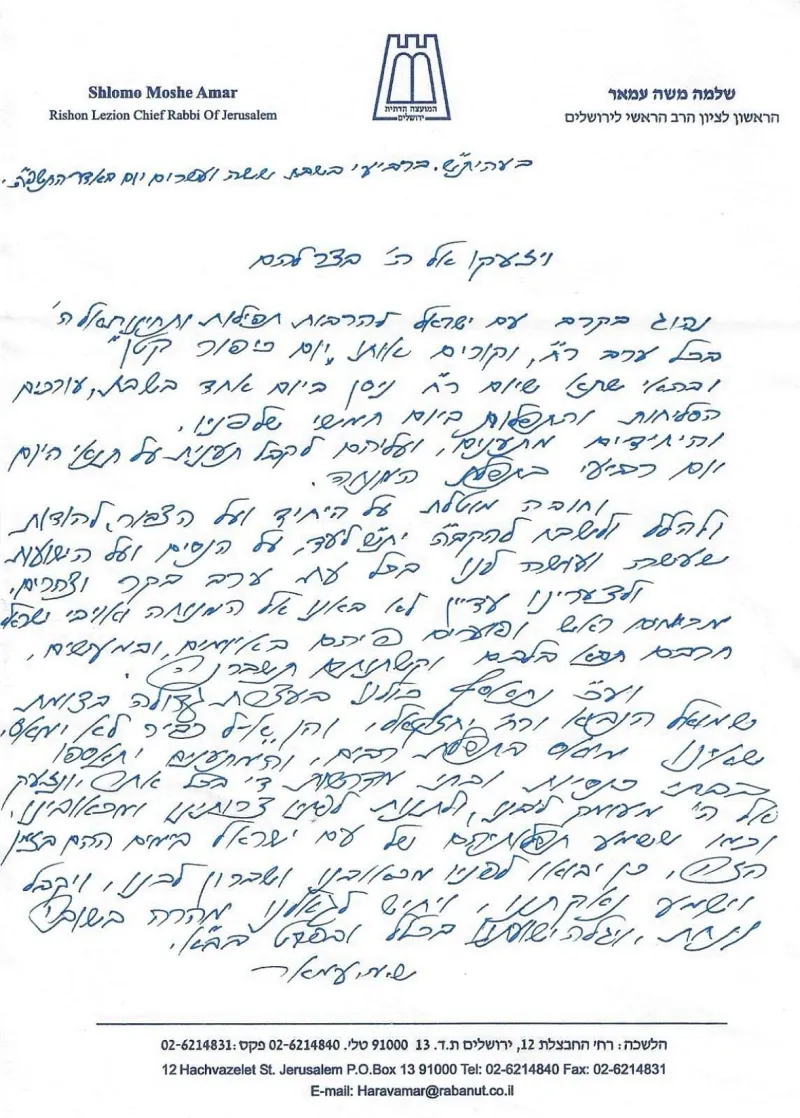 Shlomo Moshe Amar
Rishon Lezion Chief Rabbi Of Jerusalem
המועצה הדתית
ירושלים
שלמה משה עמאר
הראשון לציון הרב הראשי לירושלים
בעהית"ש. ברביעי בשבת ששה ועשרים יום באדר
ויזעקו אל ה' בצר להם
נהוג בקרב עם ישראל להרבות תפילות ותחינות אל ה'
בכל ערב ר"ח, וקורים אותו "יום כיפור קטן"
ובהאי שתא שיום ר"ח ניסן ביום אחד בשבת, עורכים
הסליחות והתפלות ביום חמישי שלפניו.
והיחידים מתענים, ועליהם לקבל תענית על תנאי היום
יום רביעי בתפלת המנחה.
וחובה מוטלת על היחיד ועל הצבור, להודות
ולהלל ולשבח להקב"ה ית"ש לעד, על הנסים ועל הישועות
שעשה ועושה לנו בכל עת ערב בקר וצהרים.
ולצערינו עדיין לא באנו אל המנוחה ואויבי ישראל
מרימים ראש ופוערים פיהם באיומים, ובמעשים,
חרבם תבא בלבם וקשתותם תשברנה.
וע"כ נתאסף כולנו בעצרת גדולה בציון
שמואל הנביא ור' יחזקאל, והן אל כביר לא ימאס,
שאינו מואס בתפלת רבים, והמתענים יתאספו
בבתי כנסיות ובתי מדרשות די בכל אתר, ונזעק
אל ה' מעומק ליבנו, ולתנות לפניו צרותינו ומכאובינו,
וכמו ששמע תפלותיהם של עם ישראל בימים ההם בזמן
הזה, כן יבואו לפניו מכאובנו ושברון לבנו, ויקבל
וישמע נאקתנו, ויחיש לגאלנו מהרה בשובה
ונחת, ויגלה ישועתו בכלל ובפרט בב"א.
ש.מ. עמאר
הלשכה: רחי החבצלת 12, ירושלים ת.ד. 13 91000 טלי. 02-6214840 פקס :02-6214831
12 Hachvazelet St. Jerusalem P.O.Box 13 91000 Tel: 02-6214840 Fax: 02-6214831
E-mail: Haravamar@rabanut.co.il